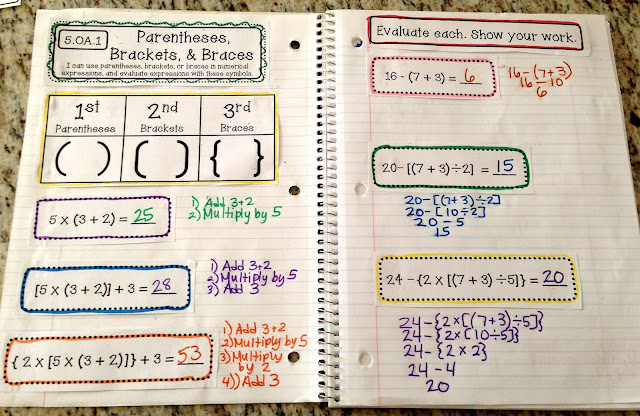 5.OA.1
Parentheses,
Brackets, & Braces
I can use parentheses, brackets, or braces in numerical
expressions, and evaluate expressions with these symbols.
1st 2nd 3rd
Parentheses Brackets Braces
( ) [ ] { }
5 x (3 + 2) = 25
1) Add 3+2
2) Multiply by 5
[5 x (3 + 2)] + 3 = 28
1) Add 3+2
2) Multiply by 5
3) Add 3
{ 2 x [5 x (3 + 2)]} + 3 = 53
1) Add 3+2
2) Multiply by 5
3) Multiply
by 2
4)) Add 3
Evaluate each. Show your work.
16 - (7 + 3) = 6
16-(7+3)
16-10
6
20- [(7 + 3) ÷2] = 15
20-[(7+3)÷2]
20-[10÷2]
20-5
15
24 - {2 x [(7 + 3) ÷5]} = 20
24-{2×[(7+3)÷5]}
24-{2×[10÷5]}
24-{2×2}
24-4
20